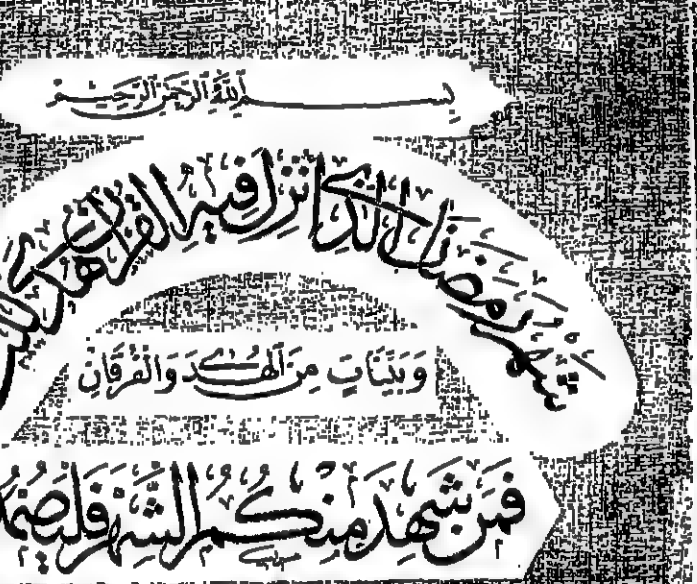 بسم الله الرحمن الرحيم
شهر رمضان الذي انزل فيه القرآن هدى
وبينات من الهدى والفرقان
فمن شهد منكم الشهر فليصمه